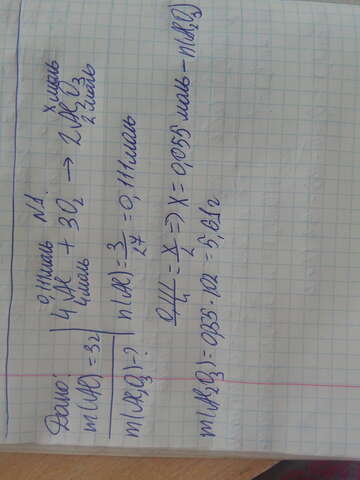 N1.
Дано:
m(Al) = 3г
m(Al2O3) - ?
0,111моль х моль
4Al + 3O2 → 2Al2O3
4моль 2моль
n(Al) = 3/27 = 0,111моль
0,111/4 = x/2 => x = 0,055 моль - n(Al2O3)
m(Al2O3) = 0,055 · 102 = 5,61г